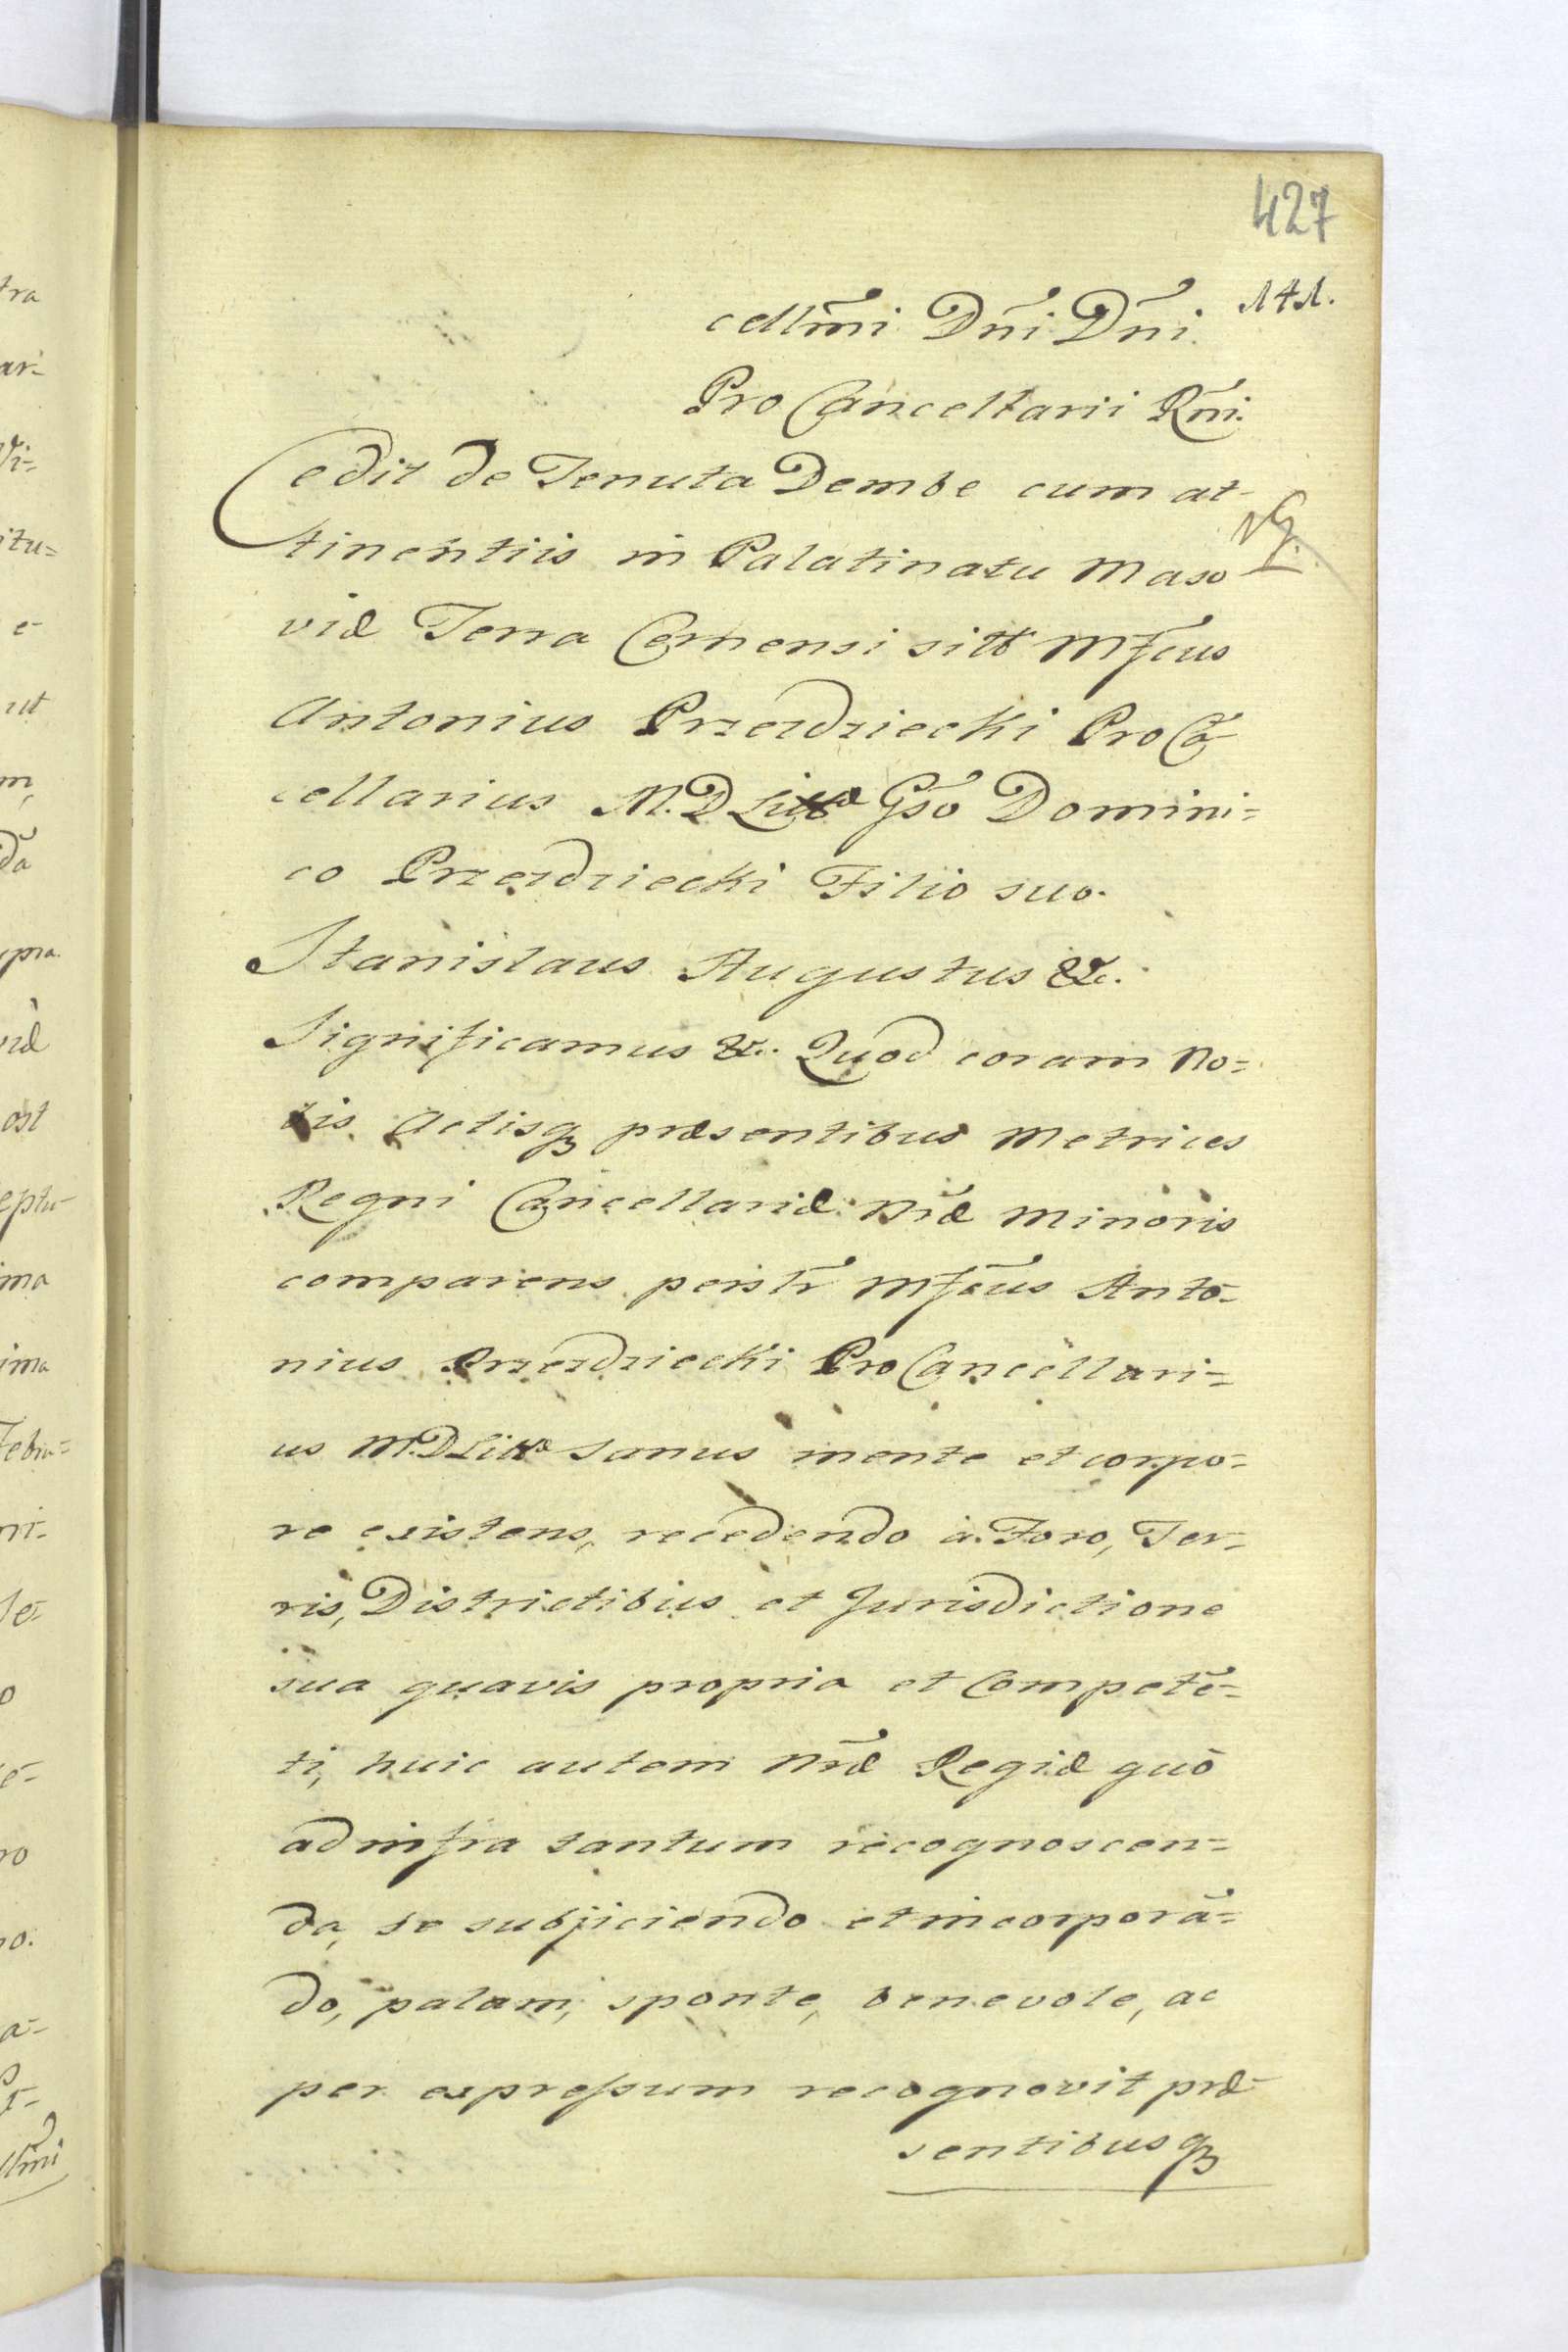 427
141.
cellm̃i Dñi Dñi
Pro Cancellarii Rñi.
Cedit de Tenuta Dembe cum at-
tinentiis in Palatinatu Maso
viæ Terra Cernensi sitt Mfcus
Antonius Przezdziecki Pro Cã
cellarius M. D Litt Gso Domini=
co Przezdziecki Filio suo.
Stanislaus Augustus &c.
Significamus &c. Quod coram No=
bis Actisq3 præsentibus Metrices
Regni Cancellariæ Nræ Minoris
comparens persltr Mfcus Anto-
nius Przezdziecki Pro Cancellari=
us M. D Litt sanus mente et corpo=
re existens, recedendo à Foro, Ter=
ris, Districtibus et Jurisdictione
sua quavis propria et Competē=
ti, huic autem Nræ Regiæ quō
ad infra tantum recognoscen=
da, se subjiciendo et incorporā=
do, palam, sponte, benevole, ac
per expressum recognovit præ-
sentibusq3
tra
ar-
Vi=
itu=
e-
ut
m,
pra.
ost
ima
Febru=
ni-
se-
o
ro
no.
a-
llmi